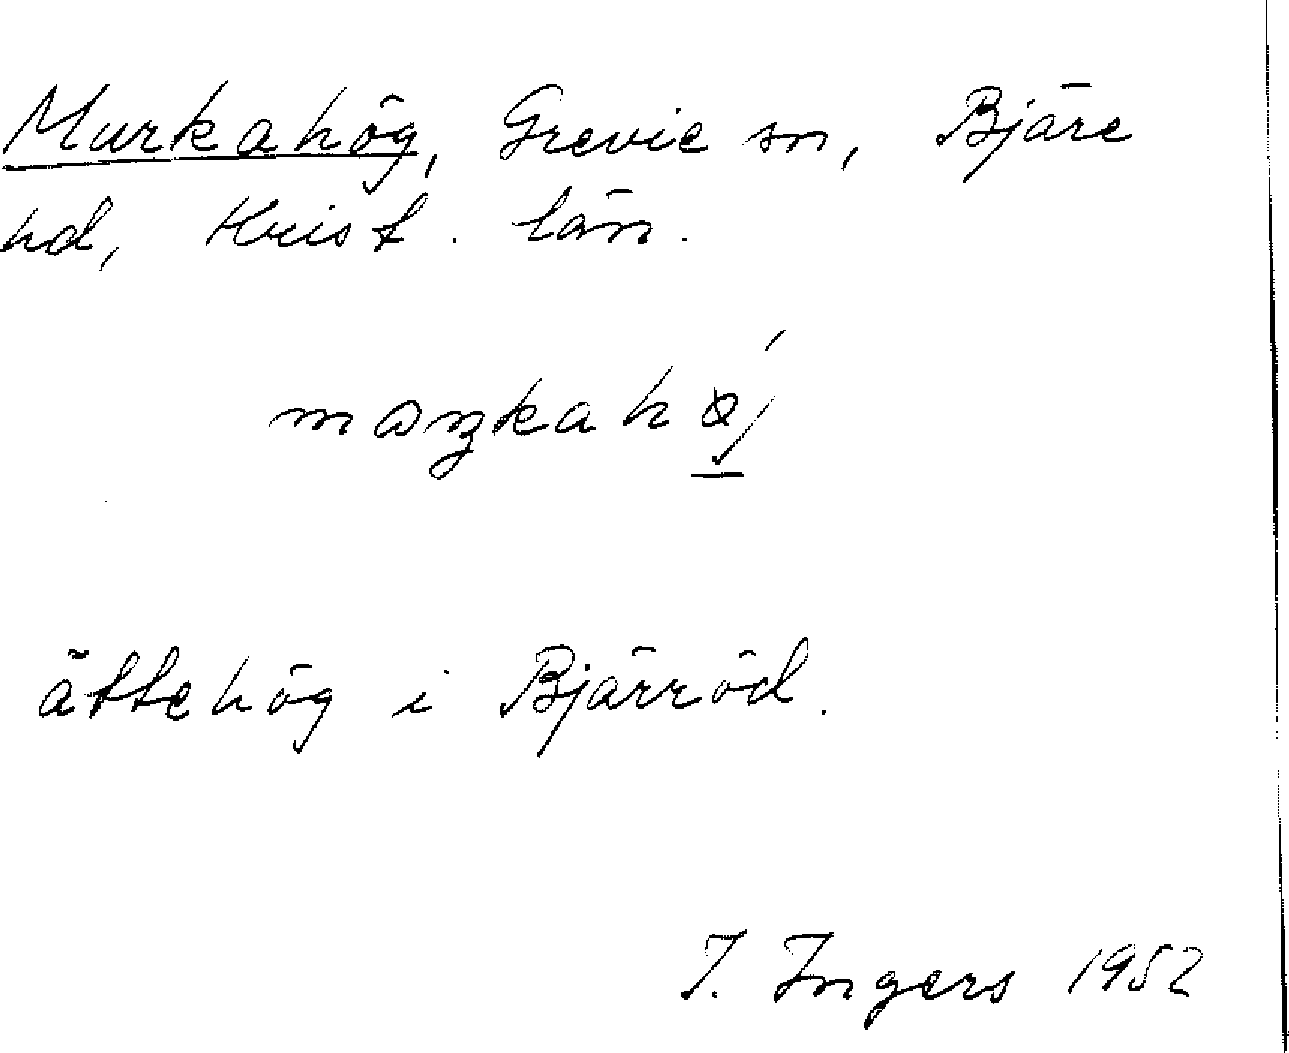 Murkahög, Grevie sn, Bjäre
hd, Krist. län.
ättehög i Bjärröd.
I. Ingers 1952